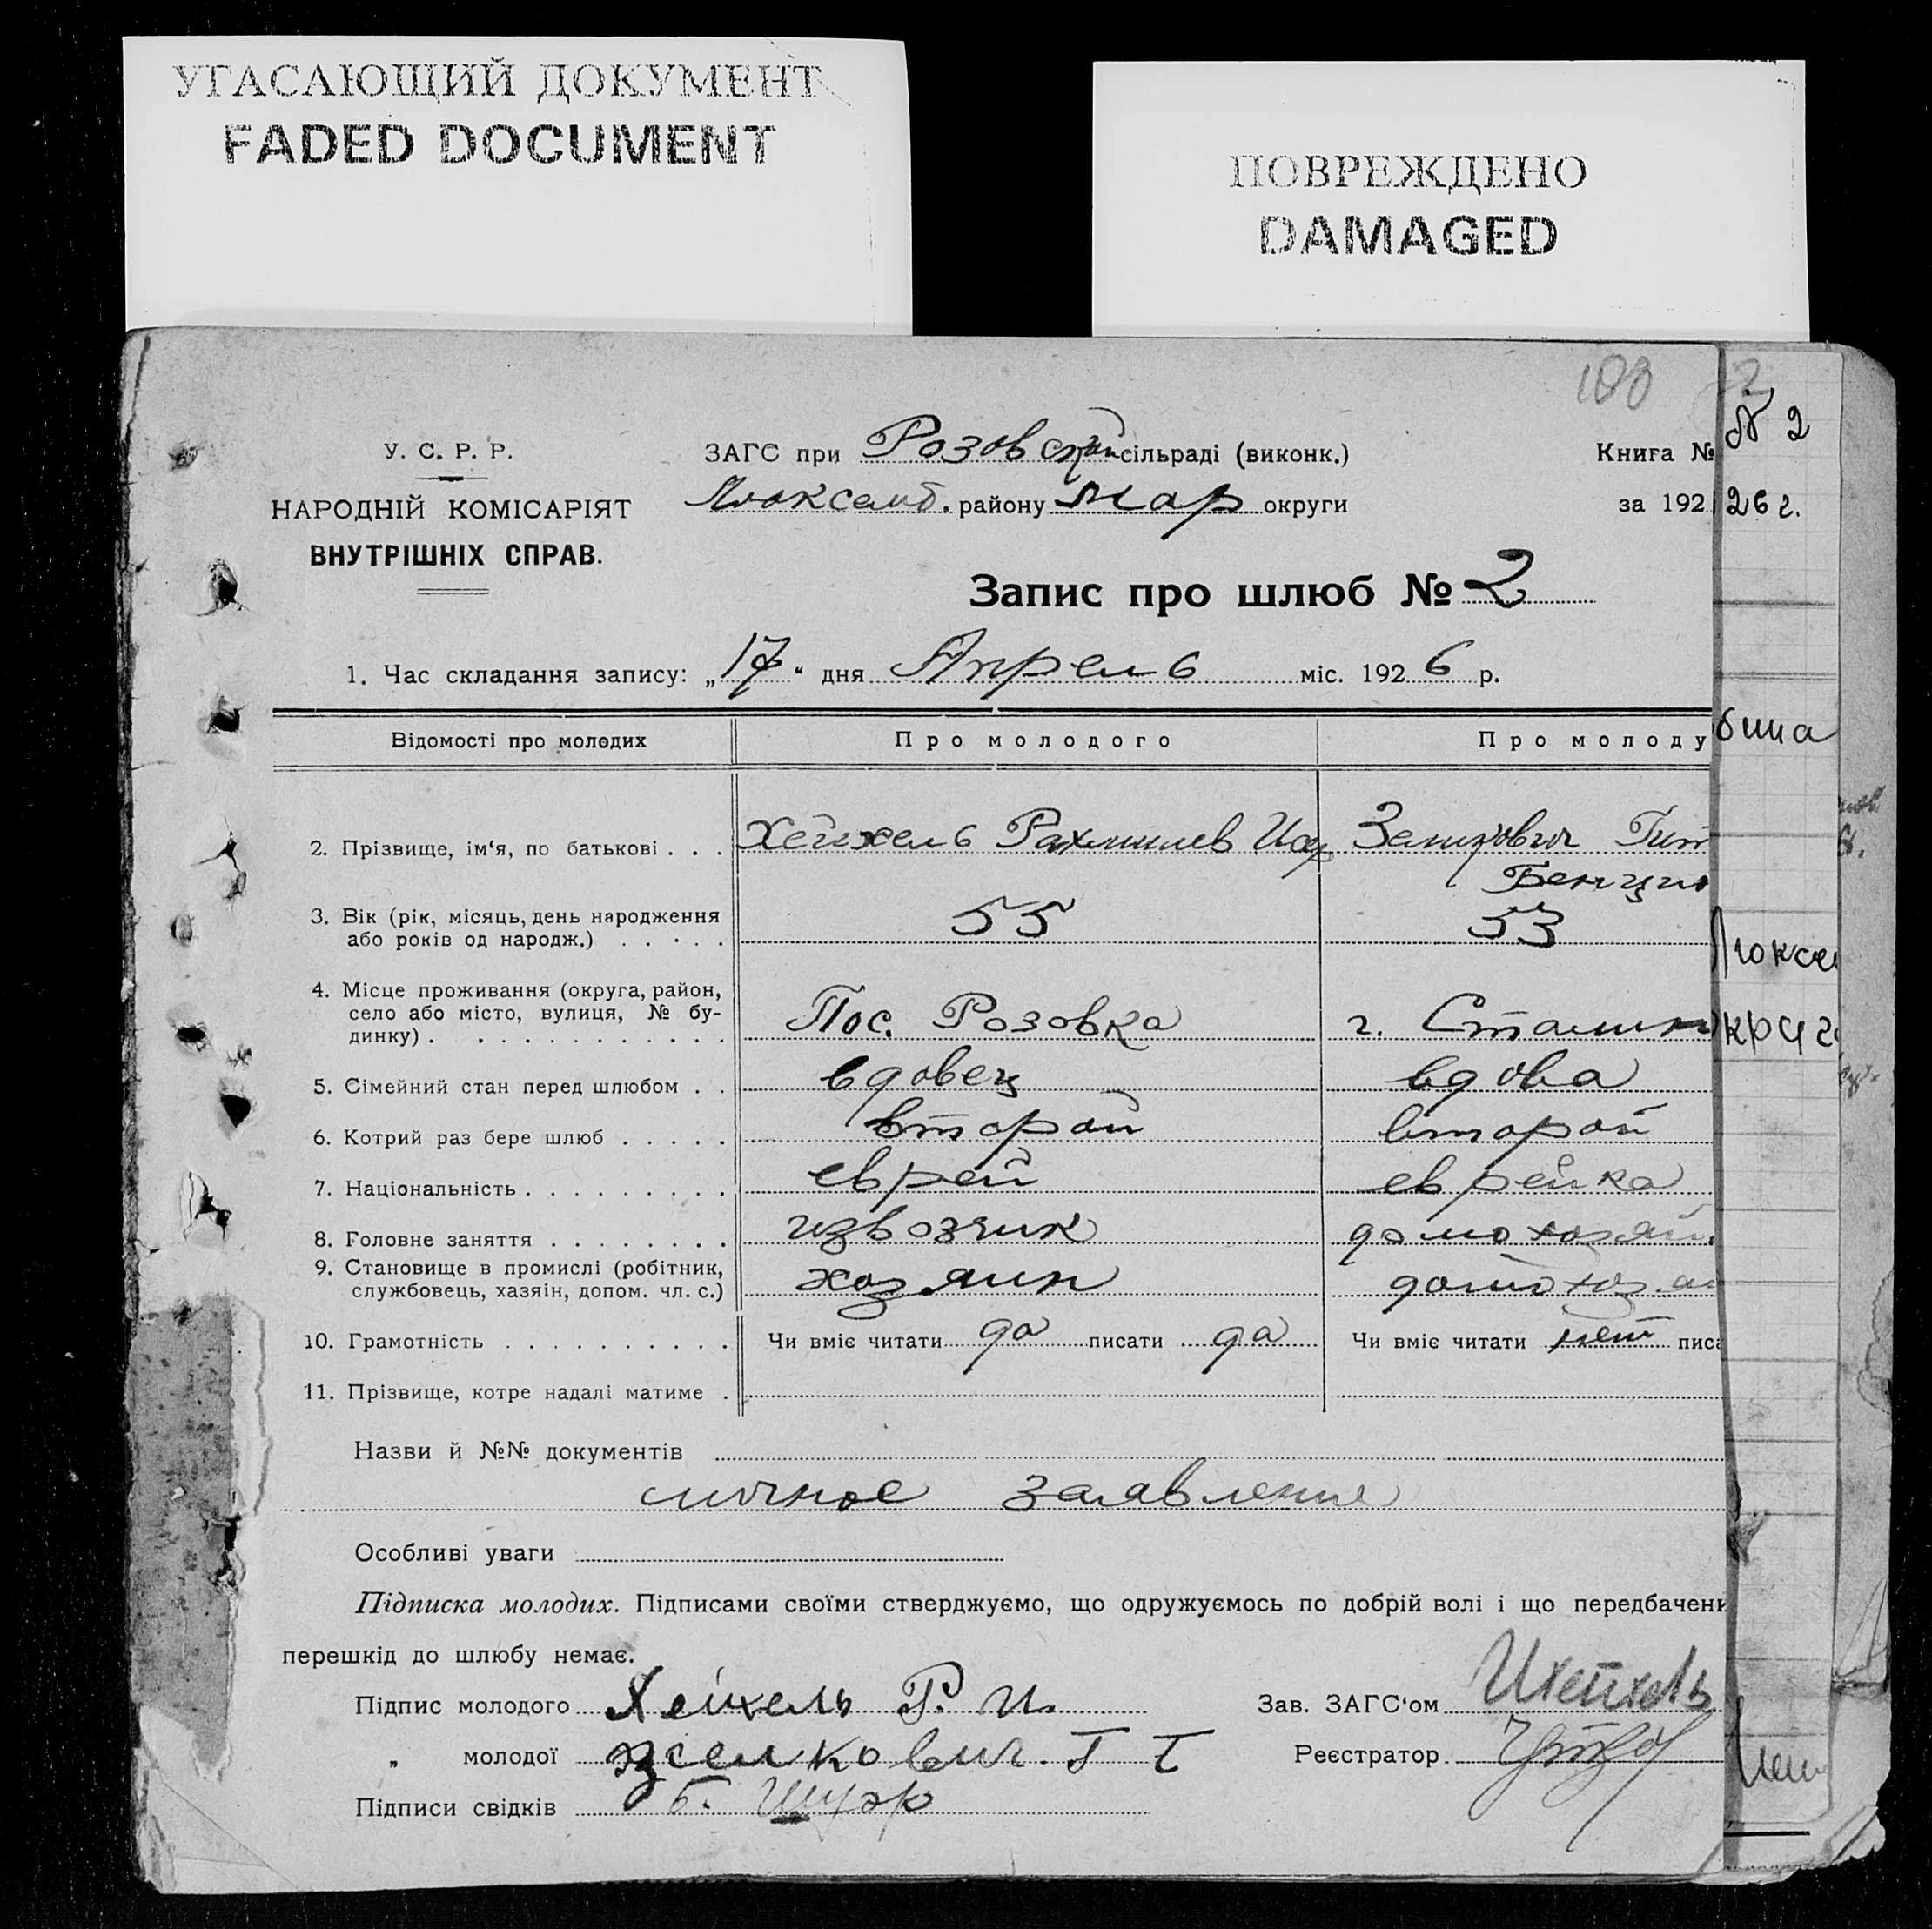 УГАСАЮЩИЙ ДОКУМЕНТ
FADED DOCUMENT
ПОВРЕЖДЕНО
DAMAGED
2
У. С. Р. Р.
НАРОДНІЙ КОМІСАРІЯТ
ВНУТРІШНІХ СПРАВ.
ЗАГС при Розовской сільраді (виконк.)
Люксемб. району Мар округи
Книга №
за 192
N 2
26 г.
Запис про шлюб № 2
1. Час складання запису: „17“ дня Апрель міс. 1926 р.
Відомості про молодих Про молодого Про молоду
бина
2. Прізвище, ім‘я, по батькові . . . Хейхель Рахмилев Иц Зеликович Гит
Бенцио
3. Вік (рік, місяць, день народження
або років од народж.) . . . . . 55 53
Люксе
4. Місце проживання (округа, район,
село або місто, вулиця, № бу-
динку) . . . . . . . . . . . . Пос. Розовка г. Сталин
круг
5. Сімейний стан перед шлюбом . . вдовец вдова
6. Котрий раз бере шлюб . . . . . второй второй
7. Національність . . . . . . . . . еврей еврейка
8. Головне заняття . . . . . . . . извозчик домохозяй
9. Становище в промислі (робітник,
службовець, хазяін, допом. чл. с.) хозяин домохозя
10. Грамотність . . . . . . . . . . Чи вміє читати да писати да Чи вміє читати нет писа
11. Прізвище, котре надалі матиме .
Назви й №№ документів
личное заявление
Особливі уваги
Підписка молодих. Підписами своїми стверджуємо, що одружуємось по добрій волі і що передбачени
перешкід до шлюбу немає.
Підпис молодого Хейхель Р. И. Зав. ЗАГС‘ом
„ молодої зелкович Реєстратор
Підписи свідків Б.